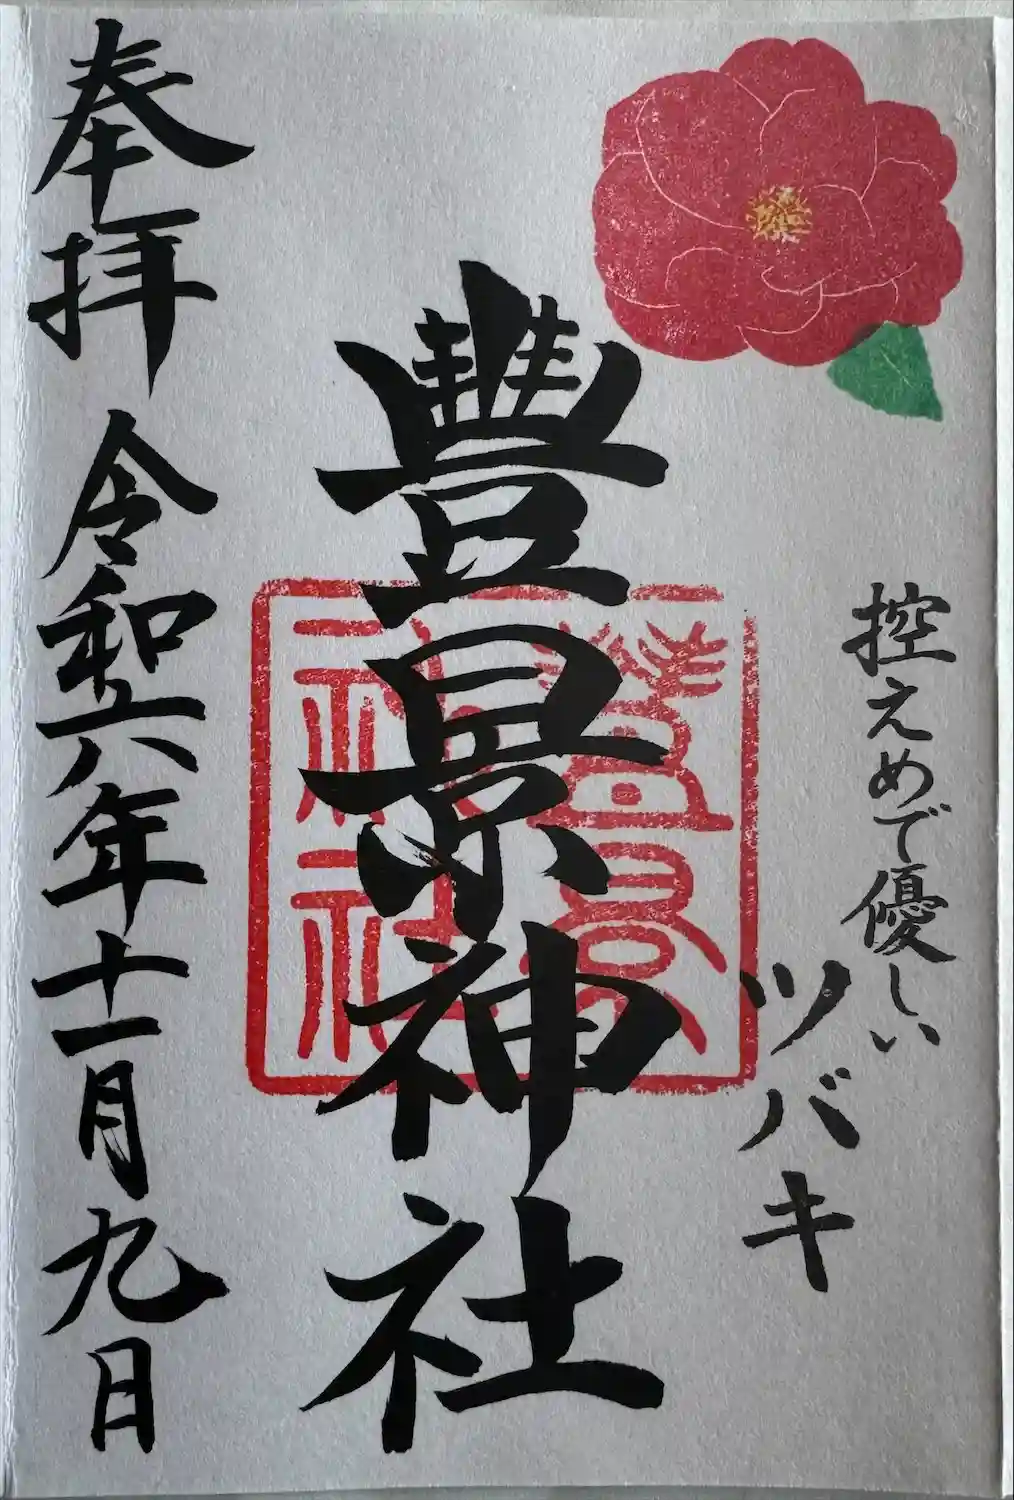 控えめで優しい
ツバキ
豐景神社
豐景
神社
奉拝 令和六年十一月九日